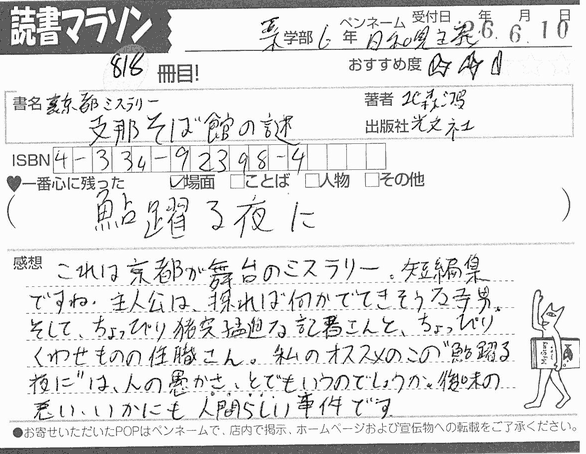 読書マラソン
薬学部 6年 ペンネーム 日和見主義 受付日 年 月 日
26.6.10
818 冊目!
おすすめ度 ☆☆☆
書名 裏京都ミステリー
支那そば館の謎
著者 北森鴻
出版社 光文社
ISBN 4-334-92398-4
♥一番心に残った ☑場面 □ことば □人物 □その他
(鮎躍る夜に)
感想 これは京都が舞台のミステリー。短編集
ですね。主人公は、探れば何かでてきそうな寺男。
そして、ちょっぴり猪突猛進な記者さんと、ちょっぴり
くわせものの住職さん。私のオススメのこの"鮎躍る
夜に"は、人の愚かさ、とでもいうのでしょうか。後味の
悪い、いかにも人間らしい事件です
●お寄せいただいたPOPはペンネームで、店内で掲示、ホームページおよび宣伝物への転載をご了承ください。